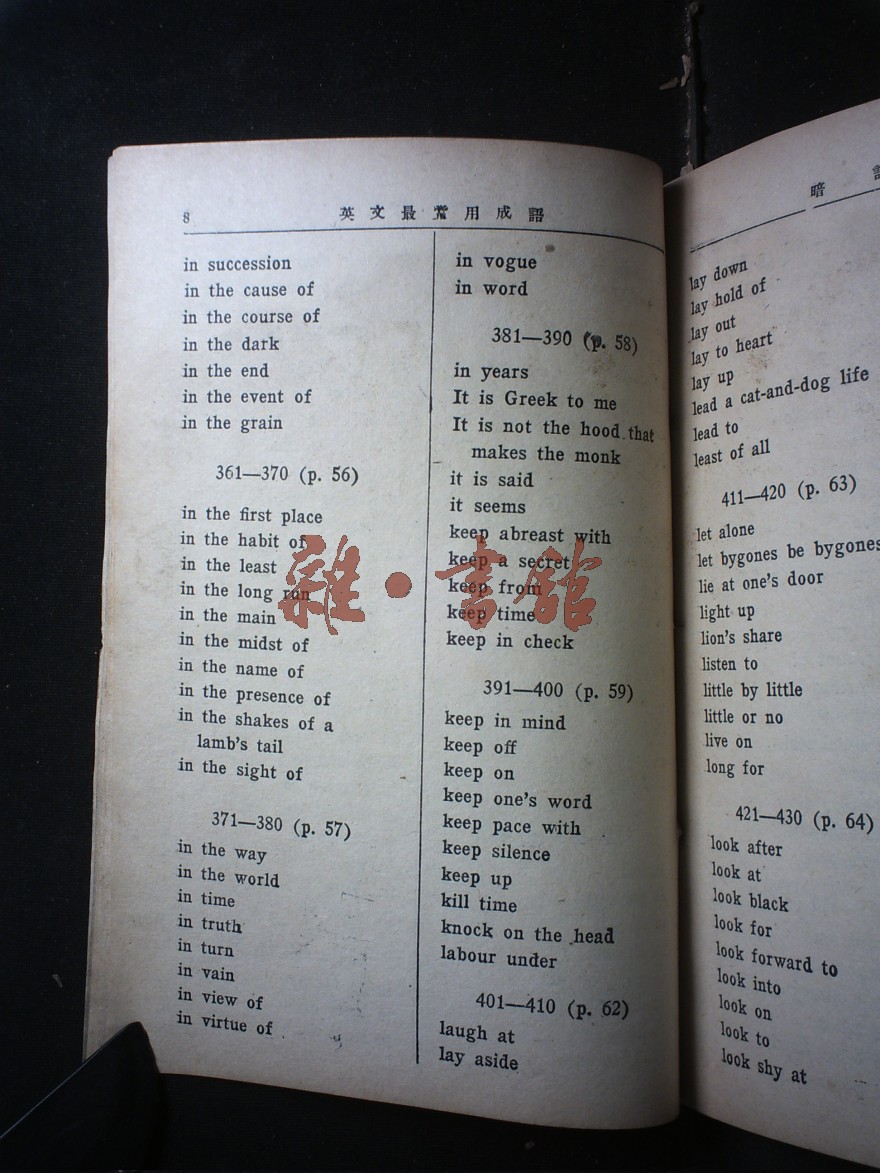 8
英文最常用成語
in succession
in the cause of
in the course of
in the dark
in the end
in the event of
in the grain
361—370 (p. 56)
in the first place
in the habit of
in the least
in the long run
in the main
in the midst of
in the name of
in the presence of
in the shakes of a
lamb's tail
in the sight of
371—380 (p. 57)
in the way
in the world
in time
in truth
in turn
in vain
in view of
in virtue of
in vogue
in word
381—390 (p. 58)
in years
It is Greek to me
It is not the hood that
makes the monk
it is said
it seems
keep abreast with
keep a secret
keep from
keep time
keep in check
391—400 (p. 59)
keep in mind
keep off
keep on
keep one's word
keep pace with
keep silence
keep up
kill time
knock on the head
labour under
401—410 (p. 62)
laugh at
lay aside
暗
lay down
lay hold of
lay out
lay to heart
lay up
lead a cat-and-dog life
lead to
least of all
411—420 (p. 63)
let alone
let bygones be bygones
lie at one's door
light up
lion's share
listen to
little by little
little or no
live on
long for
421—430 (p. 64)
look after
look at
look black
look for
look forward to
look into
look on
look to
look shy at
雜·書館